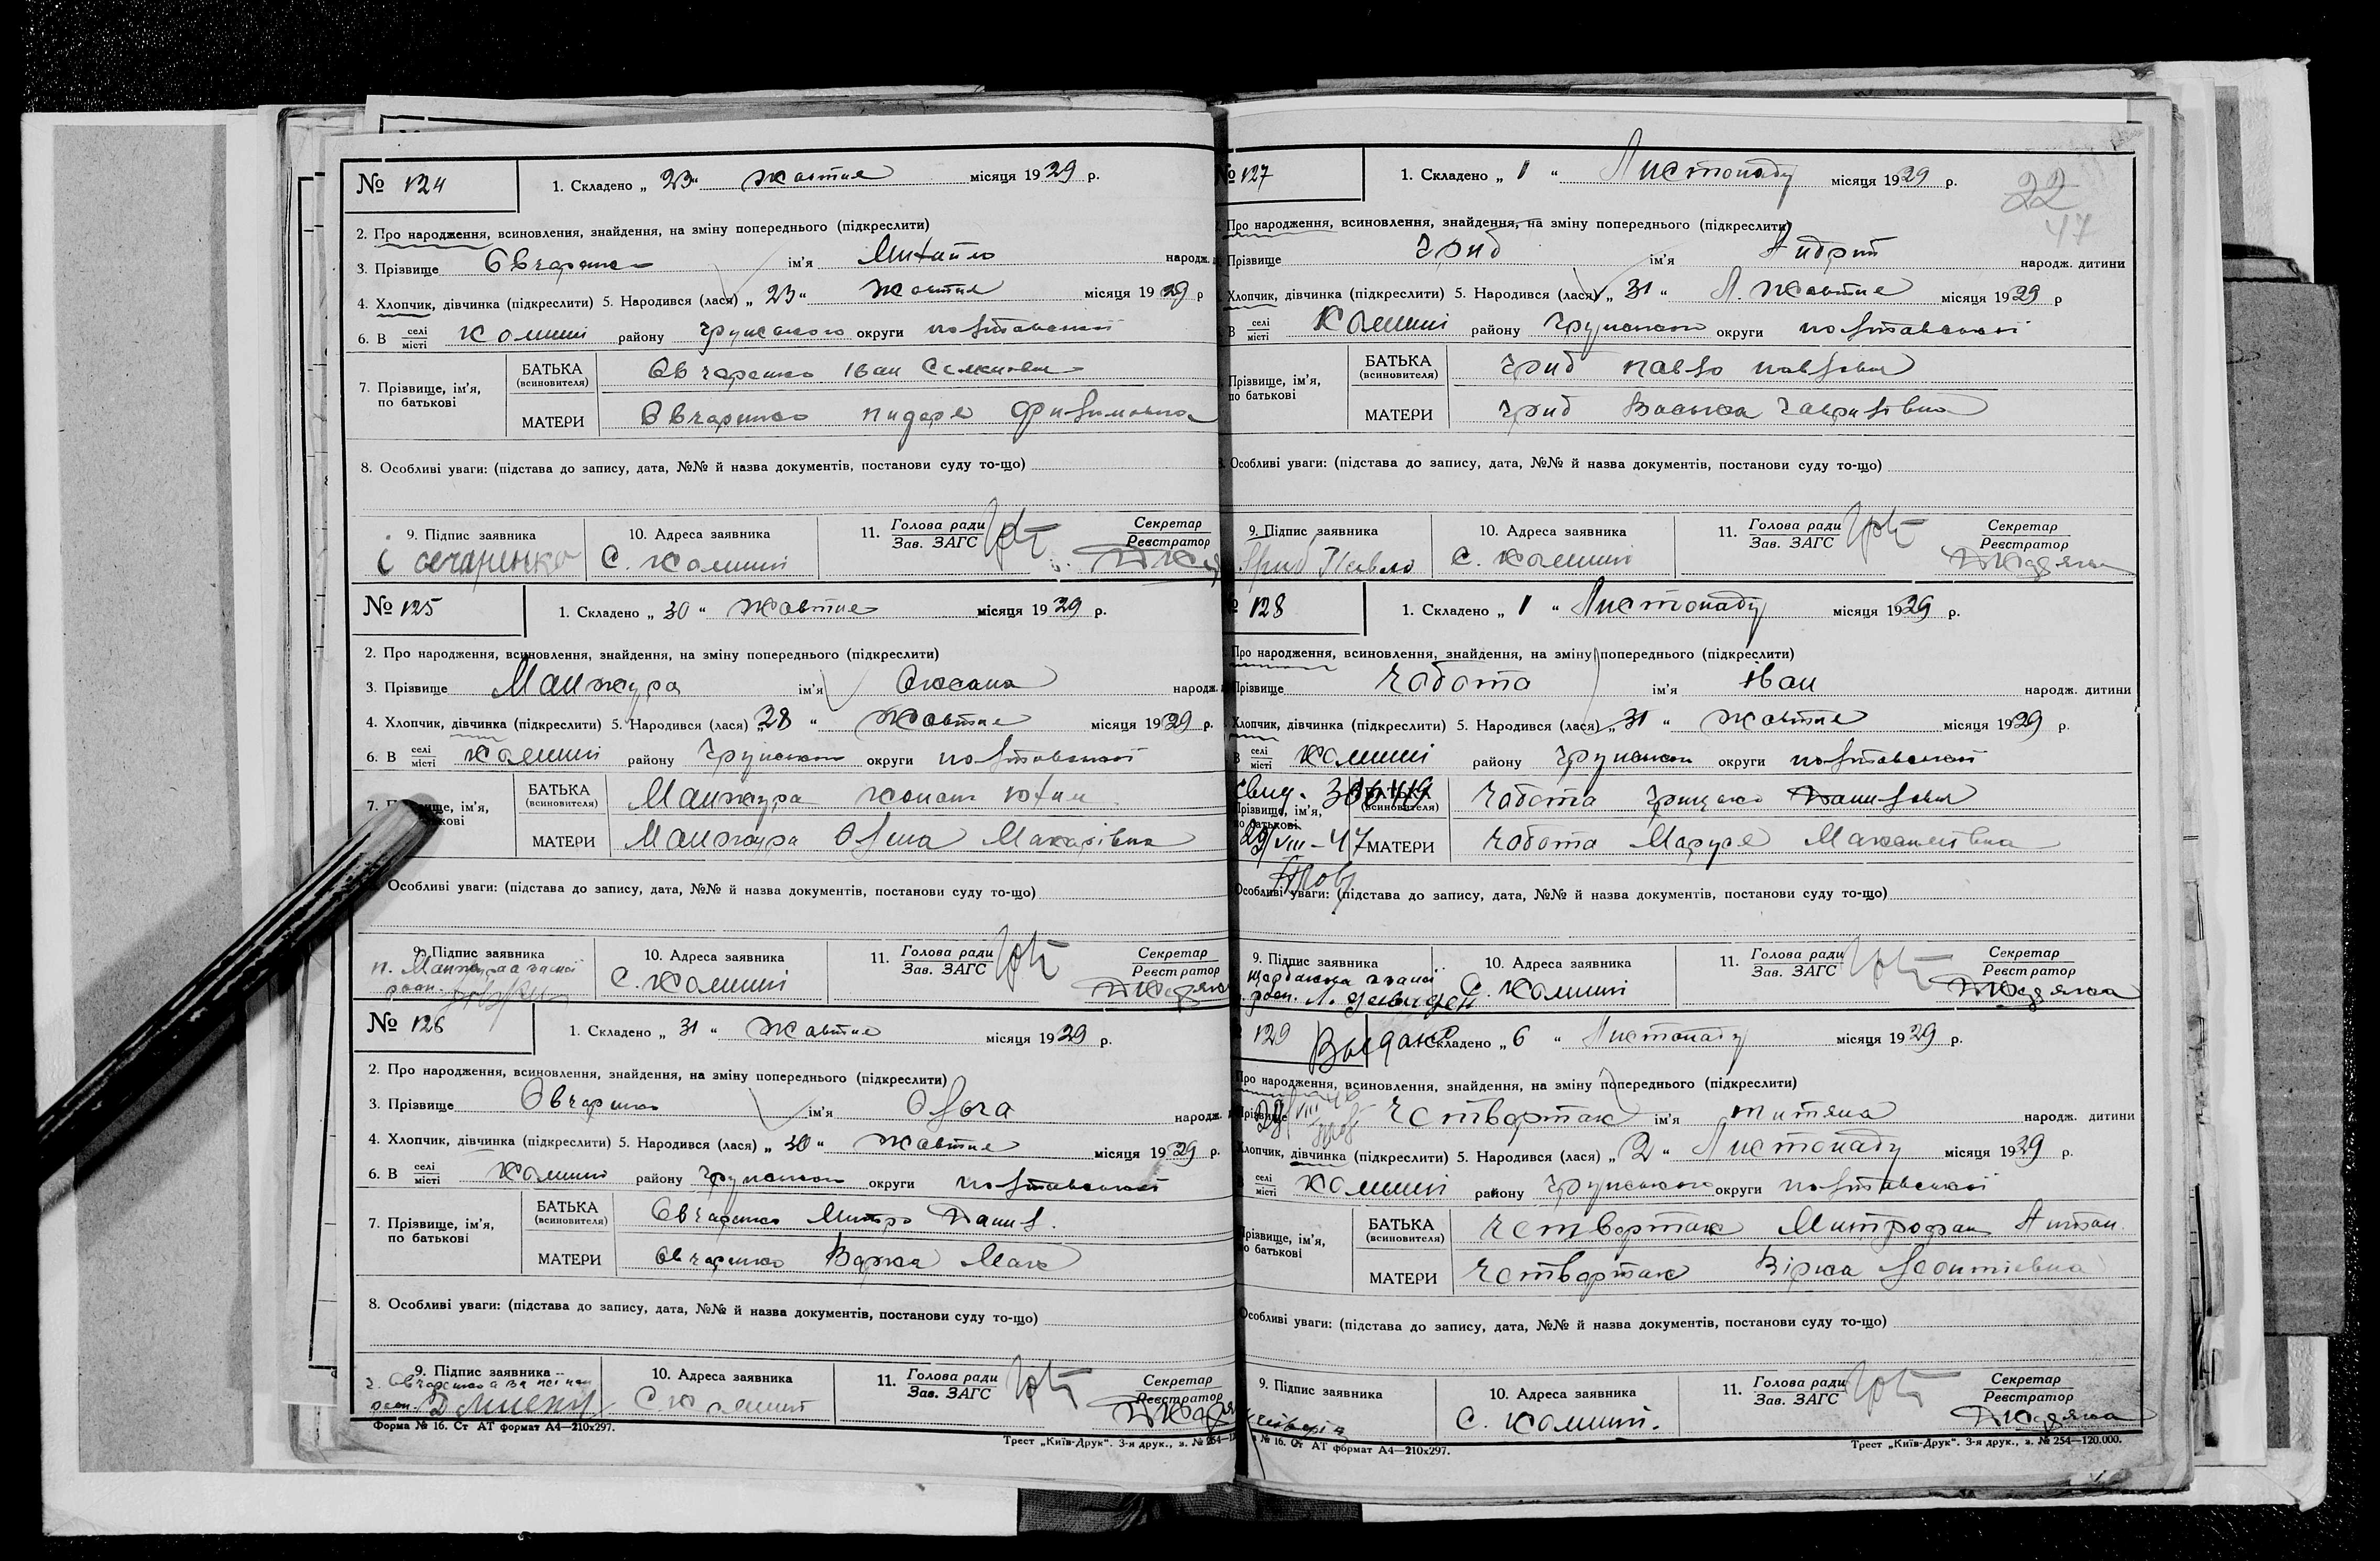 № 124 1. Складено „ 23 “ жовтня місяця 1929 р.
2. Про народження, всиновлення, знайдення, на зміну попереднього (підкреслити)
3. Прізвище Овчаренко ім’я Михайло народж.
4. Хлопчик, дівчинка (підкреслити) 5. Народився (лася) „ 23 “ жовтня місяця 1929 р
6. В селі місті Комиші району Грунського округи полтавської
7. Прізвище, ім’я, по батькові
БАТЬКА (всиновителя) Овчаренко Іван Семенович
МАТЕРИ Овчаренко
8. Особливі уваги: (підстава до запису, дата, №№ й назва документів, постанови суду то-що)
9. Підпис заявника 10. Адреса заявника 11. Голова ради Зав. ЗАГС Секретар Реєстратор
С. Комиші
№ 125 1. Складено „ 30 “ жовтня місяця 1929 р.
2. Про народження, всиновлення, знайдення, на зміну попереднього (підкреслити)
3. Прізвище Манжура ім’я Оксана народж.
4. Хлопчик, дівчинка (підкреслити) 5. Народився (лася) „ 28 “ жовтня місяця 1929 р.
6. В селі місті Комиші району Грунського округи полтавської
7. ім’я,
БАТЬКА (всиновителя) Манжура Конон Юхим
МАТЕРИ Манжура Олена Макарівна
Особливі уваги: (підстава до запису, дата, №№ й назва документів, постанови суду то-що)
9. Підпис заявника 10. Адреса заявника 11. Голова ради Зав. ЗАГС Секретар Реєстратор
С. Комиші
№ 126 1. Складено „ 31 “ жовтня місяця 1929 р.
2. Про народження, всиновлення, знайдення, на зміну попереднього (підкреслити)
3. Прізвище Овчаренко ім’я народж.
4. Хлопчик, дівчинка (підкреслити) 5. Народився (лася) „ 30 “ жовтня місяця 1929 р.
6. В селі місті Комиші району Грунського округи полтавської
7. Прізвище, ім’я, по батькові
БАТЬКА (всиновителя) Овчаренко Митро Данил.
МАТЕРИ Овчаренко Варка Мак
8. Особливі уваги: (підстава до запису, дата, №№ й назва документів, постанови суду то-що)
9. Підпис заявника 10. Адреса заявника 11. Голова ради Зав. ЗАГС Секретар Реєстратор
С. Комиші
Форма № 16. Ст АТ формат А4—210х297.
Трест „Київ-Друк“. 3-я друк., з. № 254—
22
47
№ 127 1. Складено „ 1 “ Листопаду місяця 1929 р.
Про народження, всиновлення, знайдення, на зміну попереднього (підкреслити)
Прізвище Грид ім’я Андрій народж. дитини
Хлопчик, дівчинка (підкреслити) 5. Народився (лася) „ 31 “ Жовтня місяця 1929 р
В селі місті Комиші району Грунського округи полтавської
Прізвище, ім’я, по батькові
БАТЬКА (всиновителя) Грид Павло Павлович
МАТЕРИ Грид Гаврилівна
Особливі уваги: (підстава до запису, дата, №№ й назва документів, постанови суду то-що)
9. Підпис заявника 10. Адреса заявника 11. Голова ради Зав. ЗАГС Секретар Реєстратор
Грид Павло С. Комиші
128 1. Складено „ 1 “ Листопаду місяця 1929 р.
Про народження, всиновлення, знайдення, на зміну попереднього (підкреслити)
Прізвище Чобота ім’я Іван народж. дитини
Хлопчик, дівчинка (підкреслити) 5. Народився (лася) „ 31 “ жовтня місяця 1929 р.
В селі місті Комиші району Грунського округи полтавської
Прізвище, ім’я, по батькові
БАТЬКА (всиновителя) Чобота Грицько Данилович
29/VIII-47 МАТЕРИ Чобота Маруся
Особливі уваги: (підстава до запису, дата, №№ й назва документів, постанови суду то-що)
9. Підпис заявника 10. Адреса заявника 11. Голова ради Зав. ЗАГС Секретар Реєстратор
С. Комиші
129 Складено „ 6 “ Листопаду місяця 1929 р.
Про народження, всиновлення, знайдення, на зміну попереднього (підкреслити)
Прізвище Четвертак ім’я Титяна народж. дитини
Хлопчик, дівчинка (підкреслити) 5. Народився (лася) „ 2 “ Листопаду місяця 1929 р.
селі місті Комиші району Грунського округи полтавської
Прізвище, ім’я, по батькові
БАТЬКА (всиновителя) Четвертак Митрофан Антон.
МАТЕРИ Четвертак Вірка Леонтіевна
Особливі уваги: (підстава до запису, дата, №№ й назва документів, постанови суду то-що)
9. Підпис заявника 10. Адреса заявника 11. Голова ради Зав. ЗАГС Секретар Реєстратор
С. Комиші.
№ 16. Ст АТ формат А4—210х297.
Трест „Київ-Друк“. 3-я друк., з. № 254—120.000.